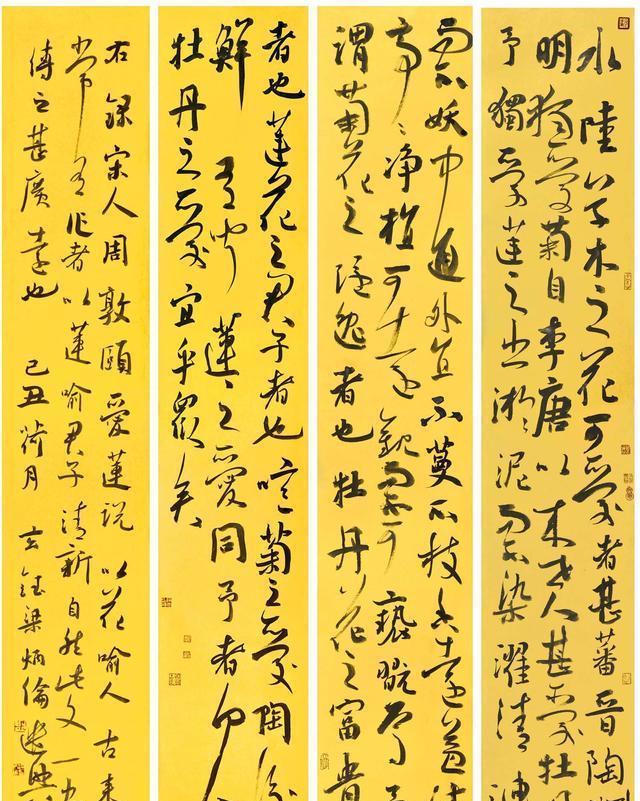 水陸草木之花可愛者甚蕃晋陶
明独愛菊自李唐以来世人甚愛牡
予獨愛蓮之出淤泥而不染濯清漣
而不妖中通外直不蔓不枝香遠益清
亭〻净植可遠觀而不可褻翫焉予
謂菊花之隱逸者也牡丹花之富貴
者也蓮花之君子者也噫菊之愛陶後
鮮有聞蓮之愛同予者何人
牡丹之愛宜乎眾矣
右錄宋人周敦頤愛蓮説以花喻人古来
常有作者以蓮喻君子清新自然此文一出
傳之甚廣遠也 己丑荷月 梁炳倫